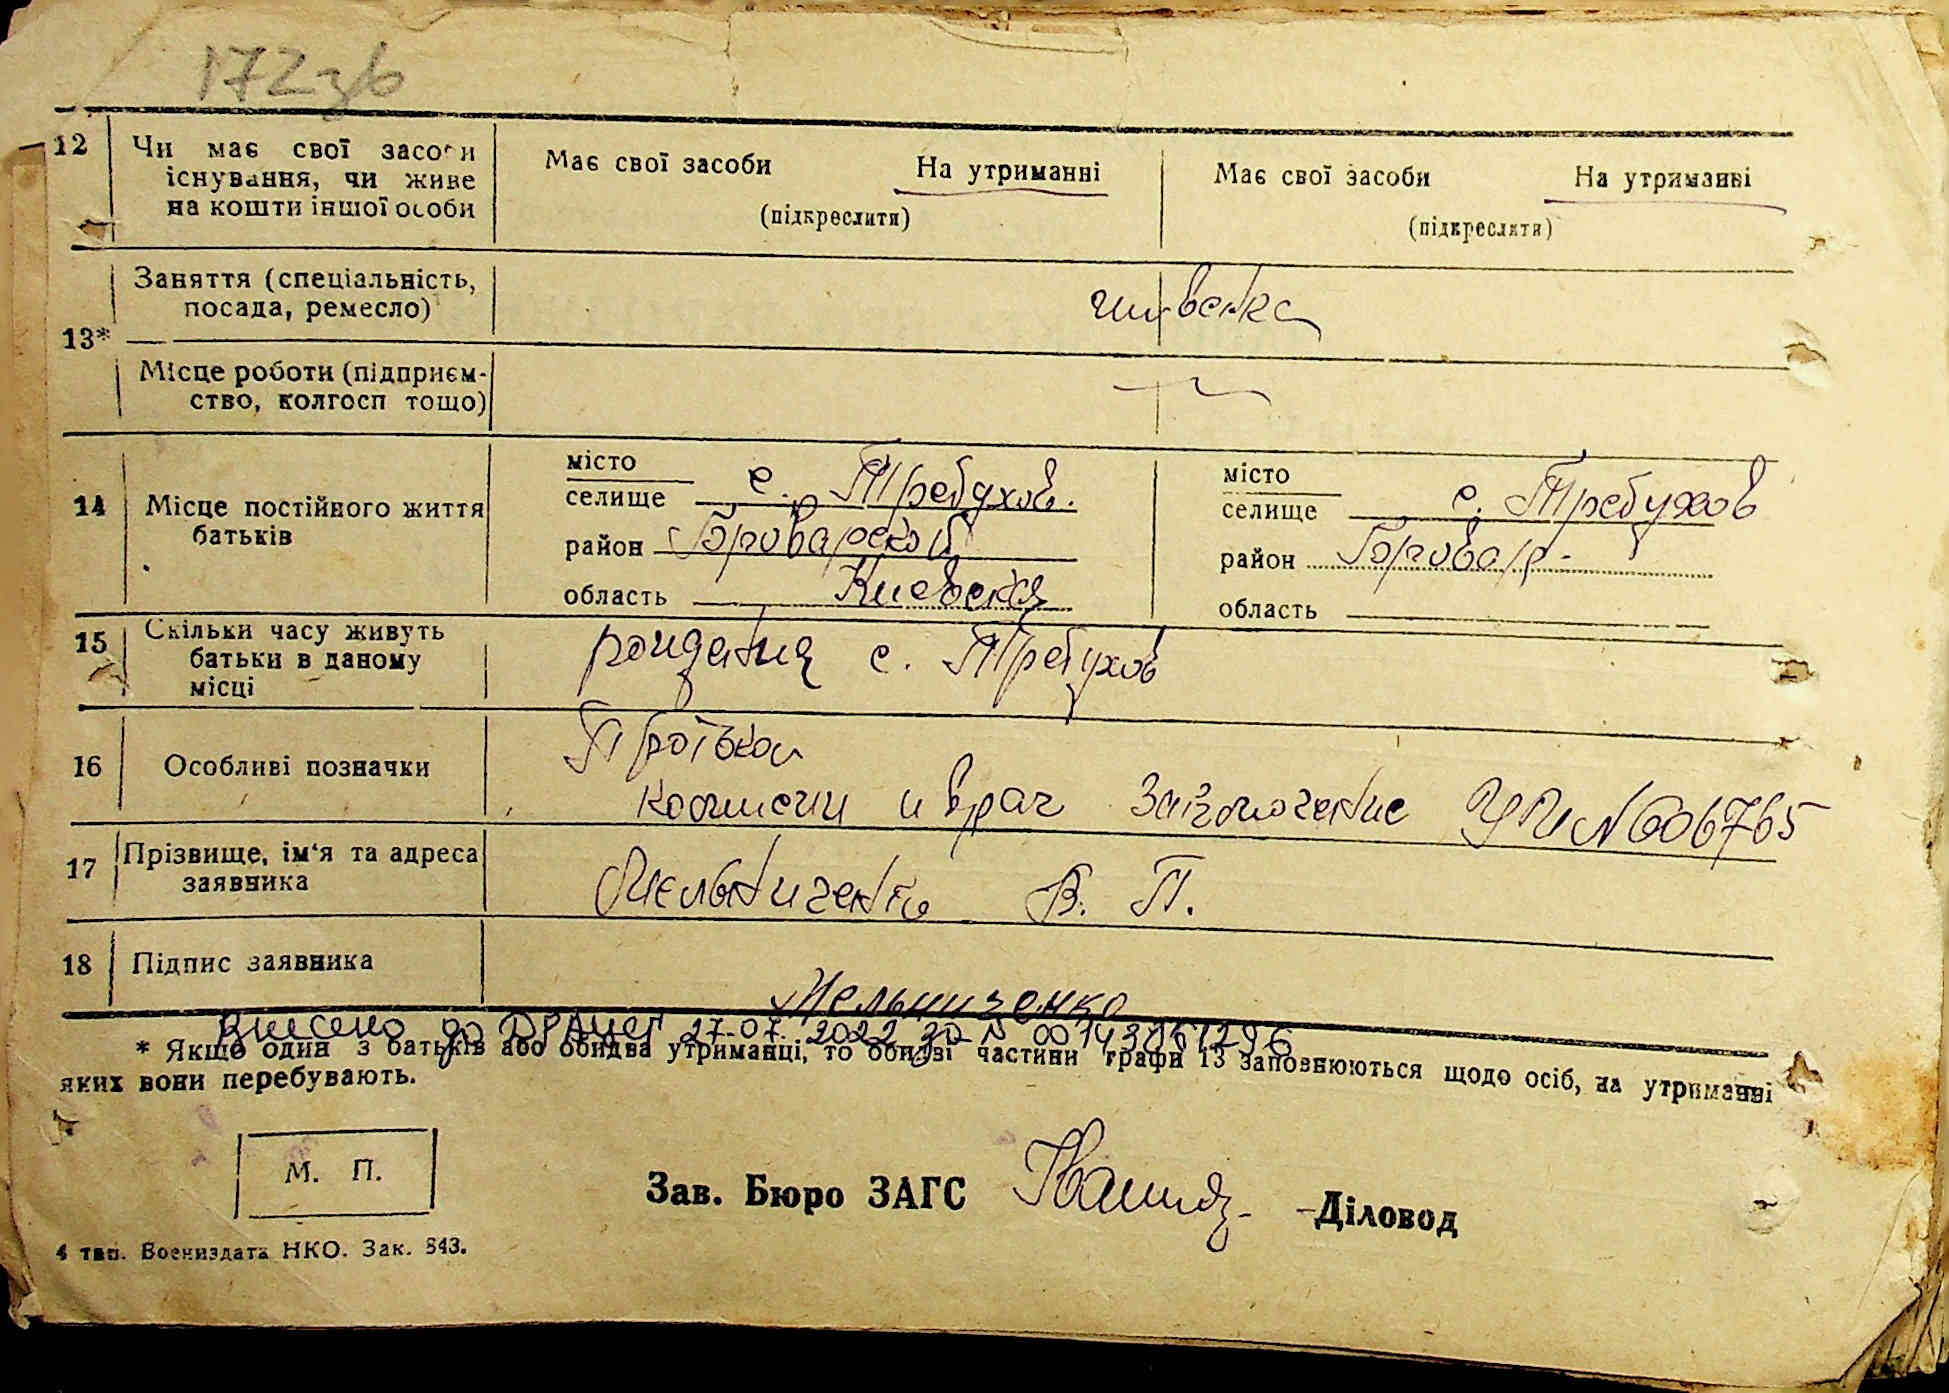 172зв
12 Чи має свої засоби Має свої засоби На утриманні Має свої засоби На утриманні
існування, чи живе
на кошти іншої особи (підкреслити) (підкреслити)
Заняття (спеціальність,
посада, ремесло)
13*
Місце роботи (підприєм-
ство, колгосп тощо)
місто місто
14 Місце постійного життя селище с. Требухов. селище с. Требухов
батьків район Броварской район Бровар-
область Киевская область
15 Скільки часу живуть рождения с. Требухов
батьки в даному
місці
16 Особливі позначки
комисии и врач Заключение №606765
17 Прізвище, ім'я та адреса
заявника Мельниченко В. П.
18 Підпис заявника Мельниченко
Внесено до ДРАЦСГ 27.07.2022 за № 00143161296
* Якщо один з батьків або обидва утриманці, то обидві частини графи 13 заповнюються щодо осіб, на утриманні
яких вони перебувають.
М. П.
Зав. Бюро ЗАГС -Діловод
4 тип. Воениздата НКО. Зак. 843.